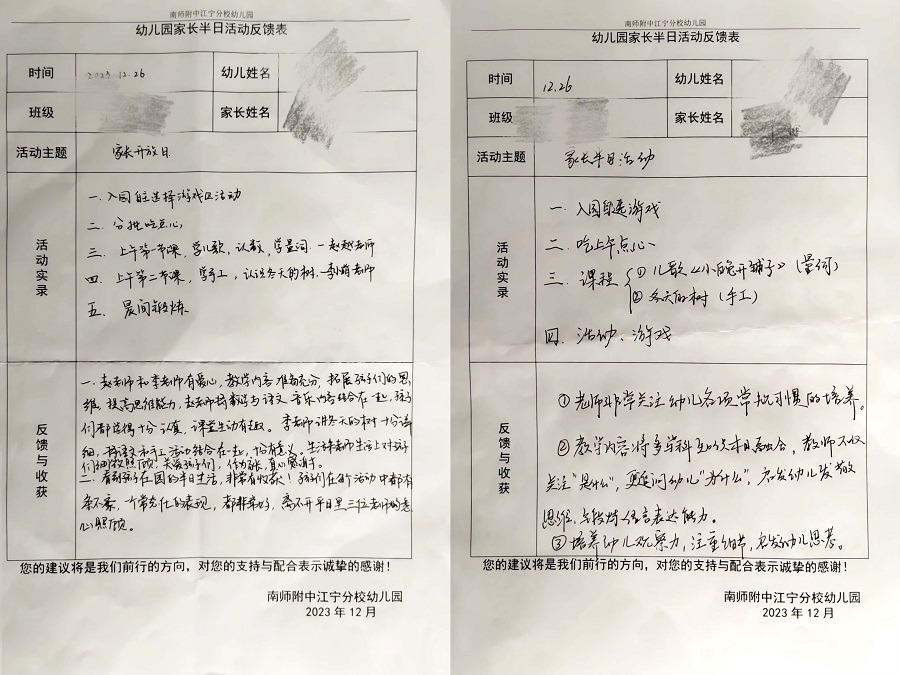 南师附中江宁分校幼儿园
幼儿园家长半日活动反馈表
时间 2023.12.26 幼儿姓名
班级 家长姓名
活动主题 家长开放日
活动实录
一. 入园自主选择游戏区活动
二. 分批吃点心
三. 上午第一节课,学儿歌,认数,学量词. -赵越老师
四. 上午第二节课,学手工,认识冬天的树.李萌老师
五. 晨间锻炼
反馈与收获
一.赵老师和李老师有爱心,教学内容准备充分,拓展孩子们的思
维,提高思维能力,赵老师将数学与语文、音乐内容结合在一起,孩子
们都学得十分认真,课堂生动有趣。李老师讲冬天的树十分详
细,将语文和手工活动结合在一起,十分有意义。生活老师生活上对孩子
们细致照顾,关爱孩子们,很为紧张,真心感谢。
二.看到孩子在园的半日生活,非常有收获!孩子们在各个活动中都有
条不紊,个常规的表现,都非常好,离不开平日里三位老师的悉
心照顾。
您的建议将是我们前行的方向,对您的支持与配合表示诚挚的感谢!
南师附中江宁分校幼儿园
2023 年 12 月
南师附中江宁分校幼儿园
幼儿园家长半日活动反馈表
时间 12.26 幼儿姓名
班级 家长姓名
活动主题 家长半日活动
活动实录
一. 入园自选游戏
二. 吃上午点心
三. 课程 ① 儿歌《小兔开铺子》(量词)
② 冬天的树(手工)
四. 活动、游戏
反馈与收获
① 老师非常关注幼儿各项常规习惯的培养。
② 教学内容将多学科知识相融合,教师不仅
关注"是什么",更追问幼儿"为什么",启发幼儿发散
思维,与锻炼语言表达能力。
③ 培养幼儿观察力,注重细节,启发幼儿思考。
您的建议将是我们前行的方向,对您的支持与配合表示诚挚的感谢!
南师附中江宁分校幼儿园
2023 年 12 月